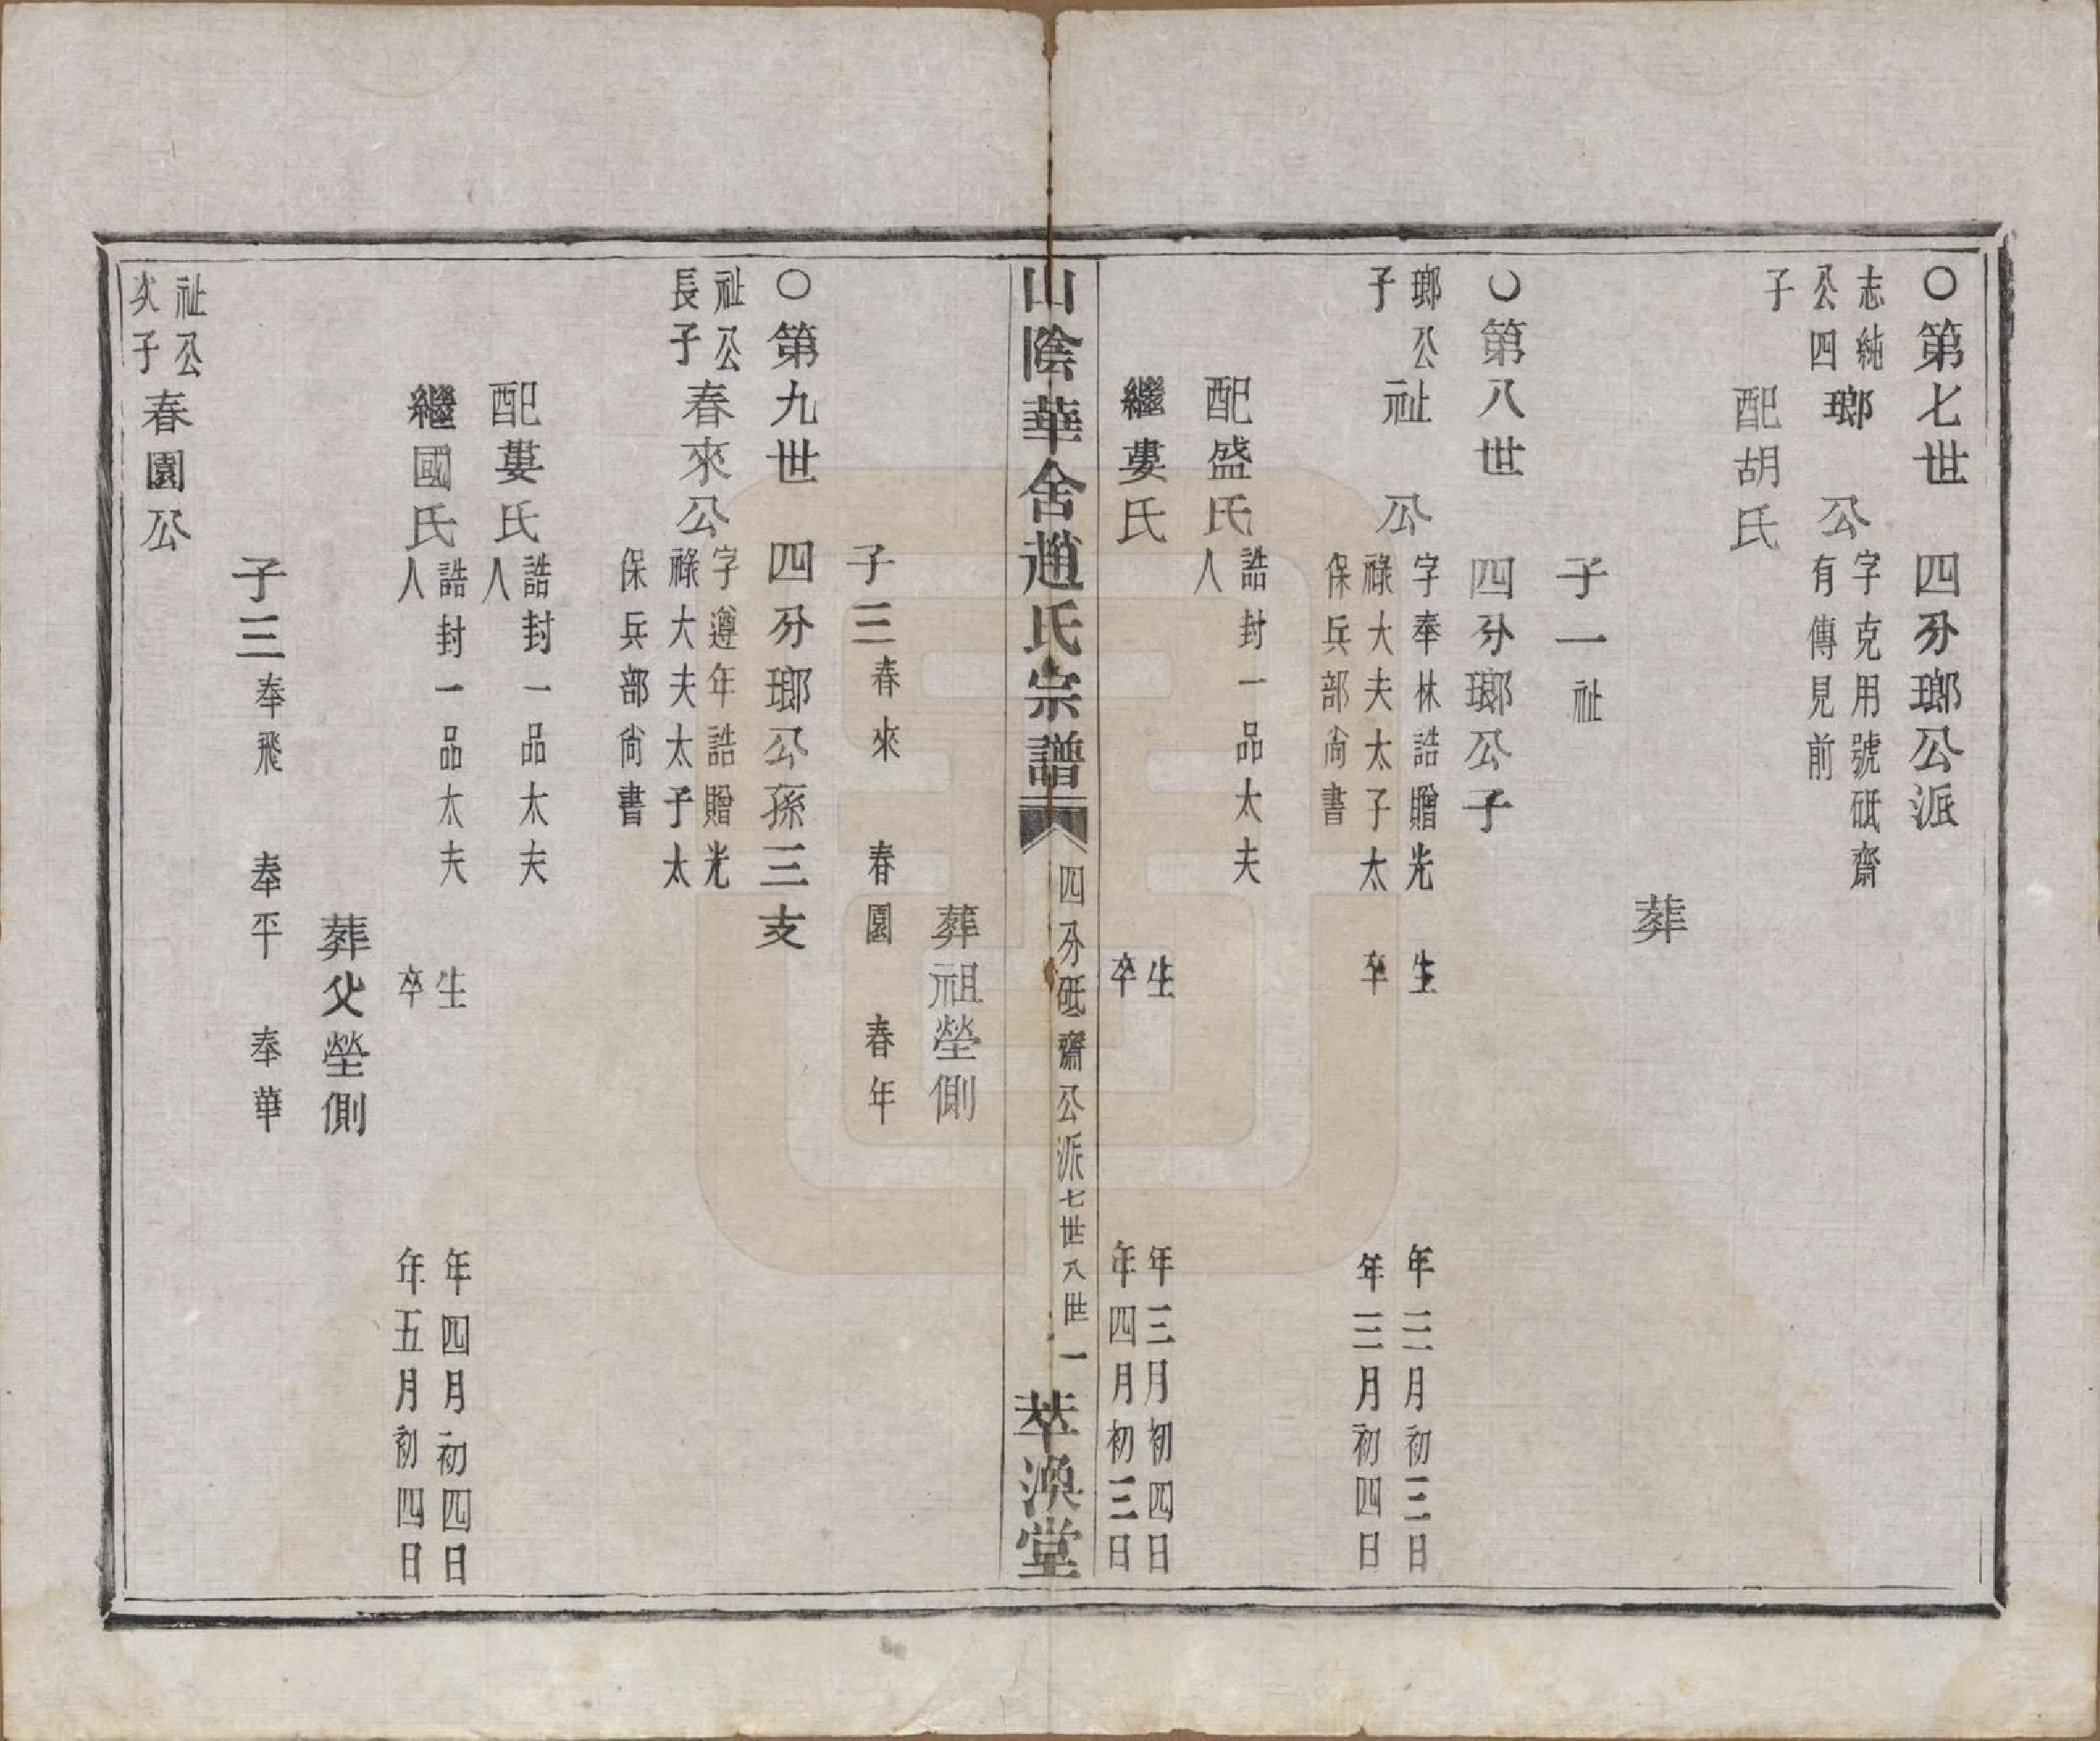 ○第七世　四分瑯公派
志純公四子　瑯　公　字克用號砥齋有傳見前
配胡氏
葬
子一　祉
○第八世　四分瑯公子
瑯公子　祉　公　字奉林誥贈光祿大夫太子太保兵部尚書　生　年三月初三日　卒　年三月初四日
配盛氏　誥封一品太夫人
繼婁氏　生　年三月初四日　卒　年四月初三日
山陰華舍趙氏宗譜　四分砥齋公派　七世八世　一　萃渙堂
葬祖塋側
子三　春來　春園　春年
○第九世　四分瑯公孫三支
祉公長子　春來公　字遵年誥贈光祿大夫太子太保兵部尚書
配婁氏　誥封一品太夫人
繼國氏　誥封一品太夫人　生　年四月初四日　卒　年五月初四日
葬父塋側
子三　奉飛　奉平　奉華
祉公次子　春園公